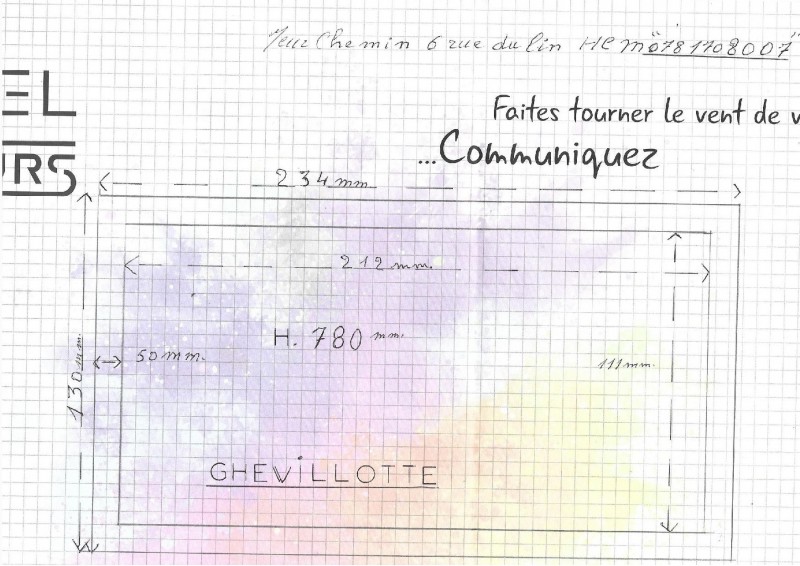 Mr Chemin 6 rue du lin HEM "0781708007"
EL
URS
Faites tourner le vent de v
...Communiquez
234 mm
212 mm.
H. 780 mm.
50 mm.
111 mm.
130 mm.
GHEViLLOTTE